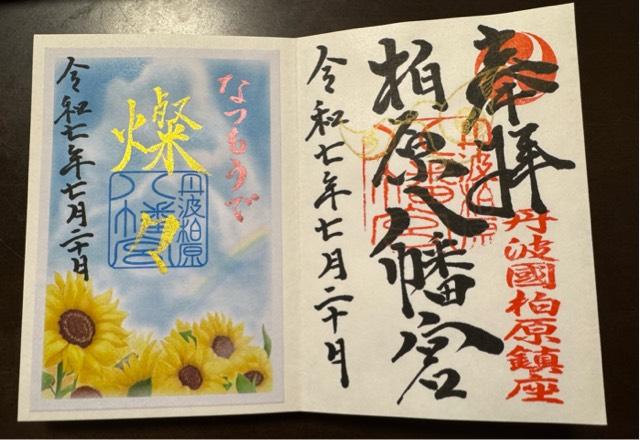 奉拝
丹波國柏原鎮座
柏原八幡宮
丹波柏原
八幡宮
令和七年七月二十日
なつもうで
燦々
丹波柏原
八幡宮
令和七年七月二十日